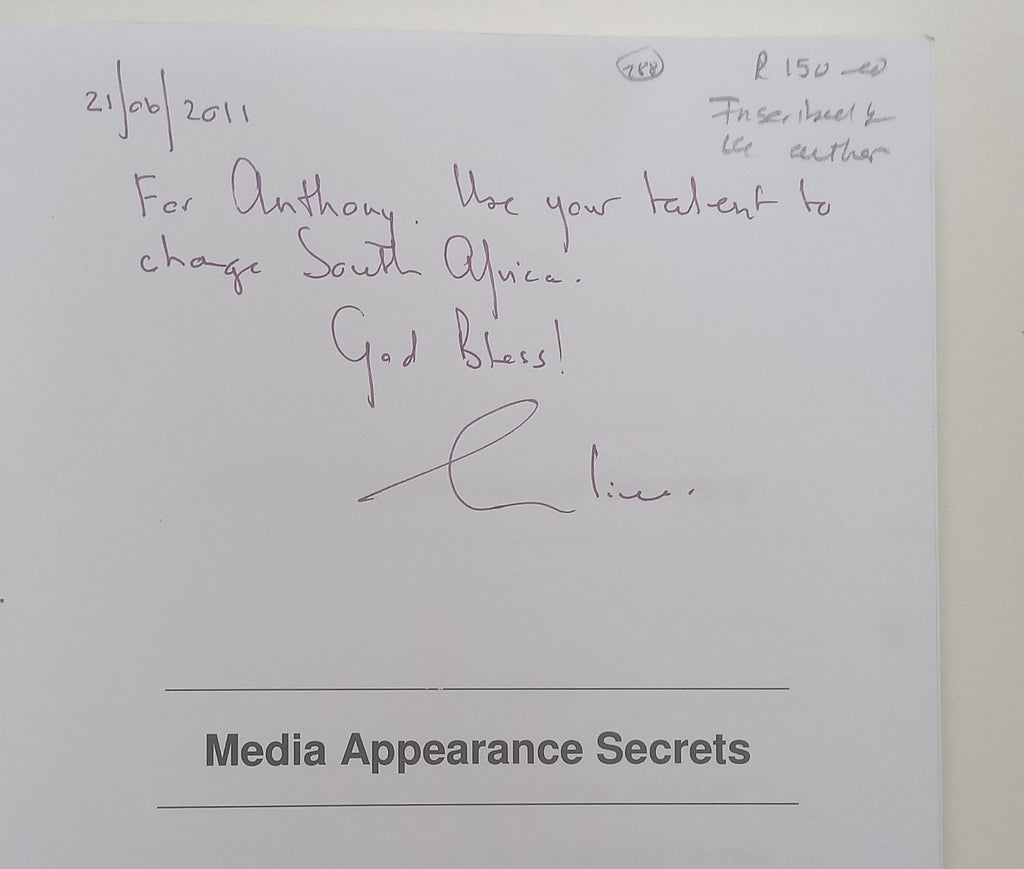 21/06/2011
288
R 150-00
Inscribed by
the author
For Anthony. Use your talent to
change South Africa.
God Bless!
Media Appearance Secrets